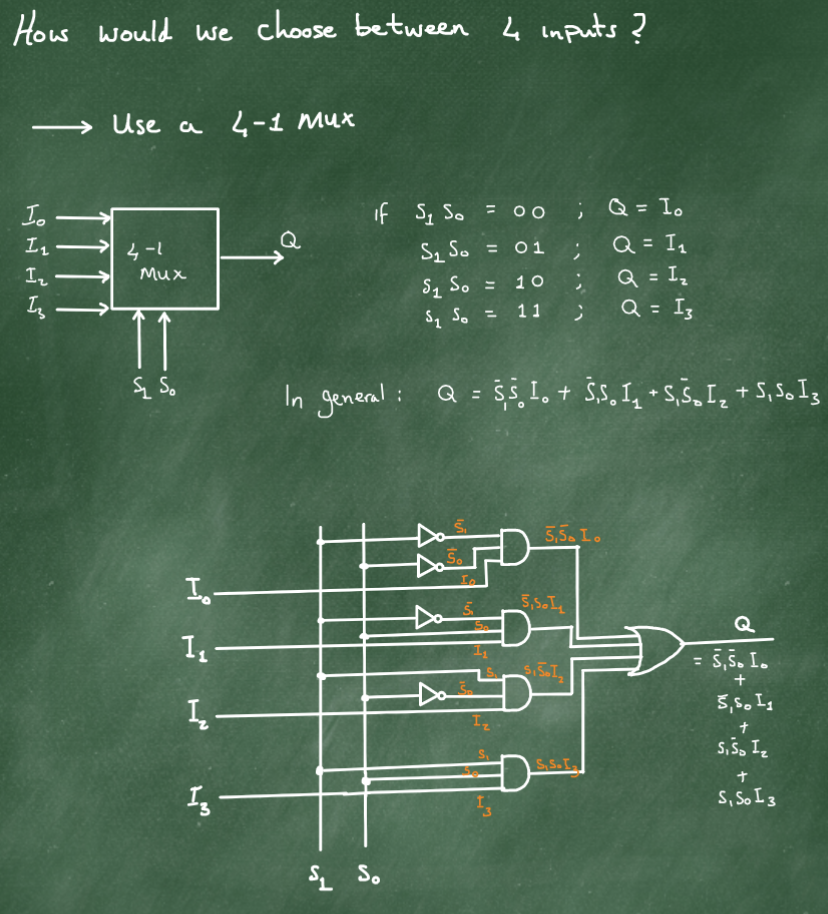 How would we choose between 4 inputs?
→ Use a 4-1 Mux
I₀
I₁
I₂
I₃
4-1
Mux
Q
S₁ S₀
if S₁ S₀ = 00 ; Q = I₀
S₁ S₀ = 01 ; Q = I₁
S₁ S₀ = 10 ; Q = I₂
S₁ S₀ = 11 ; Q = I₃
In general : Q = S̄₁S̄₀I₀ + S̄₁S₀I₁ + S₁S̄₀I₂ + S₁S₀I₃
S̄₁
S̄₀
I₀
S̄₁S̄₀I₀
I₀
S̄₁
S₀
I₁
S̄₁S₀I₁
I₁
S₁
S̄₀
I₂
S₁S̄₀I₂
I₂
S₁
S₀
I₃
S₁S₀I₃
I₃
S₁ S₀
Q
= S̄₁S̄₀I₀
+
S̄₁S₀I₁
+
S₁S̄₀I₂
+
S₁S₀I₃